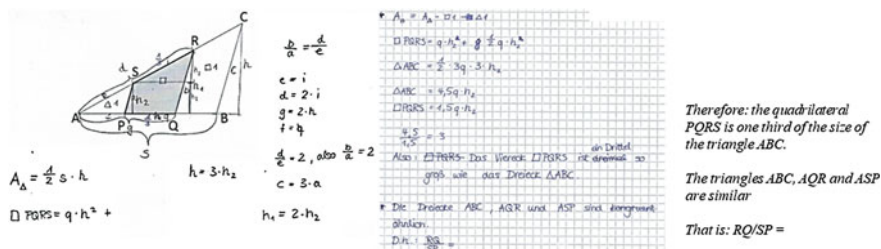 C
R
S
A
P
Q
B
S
A_Δ = 1/2 s · h
h = 3 · h₂
□ PQRS = q · h² +
h₁ = 2 · h₂
b/a = d/e
e = i
d = 2 · i
g = 2 · h
d/e = 2, also b/a = 2
c = 3 · a
□ PQRS = q · h₂² + g 1/2 q · h₂²
Δ ABC = 1/2 · 3q · 3 · h₂
Δ ABC = 4,5q · h₂
□ PQRS = 1,5q · h₂
4,5/1,5 = 3
ein Drittel
Also: □ PQRS Das Viereck □ PQRS ist dreimal so
groß wie das Dreieck Δ ABC.
* Die Dreiecke ABC, AQR und ASP sind kongruent
ähnlich.
D.h.: RQ/SP =
Therefore: the quadrilateral
PQRS is one third of the size of
the triangle ABC.
The triangles ABC, AQR and ASP
are similar
That is: RQ/SP =